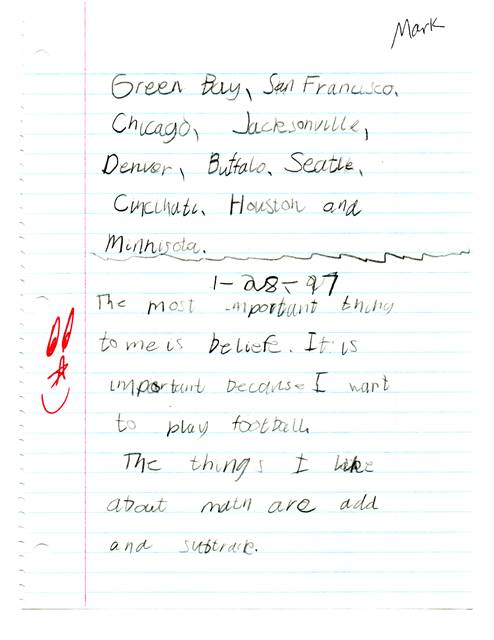 Mark
Green Bay, San Francisco,
Chicago, Jacksonville,
Denver, Buffalo, Seatle,
Cincinati, Houston and
Minnisota.
1-28-97
The most important thing
to me is beliefe. It is
important because I want
to play football.
The things I like
about math are add
and subtrack.